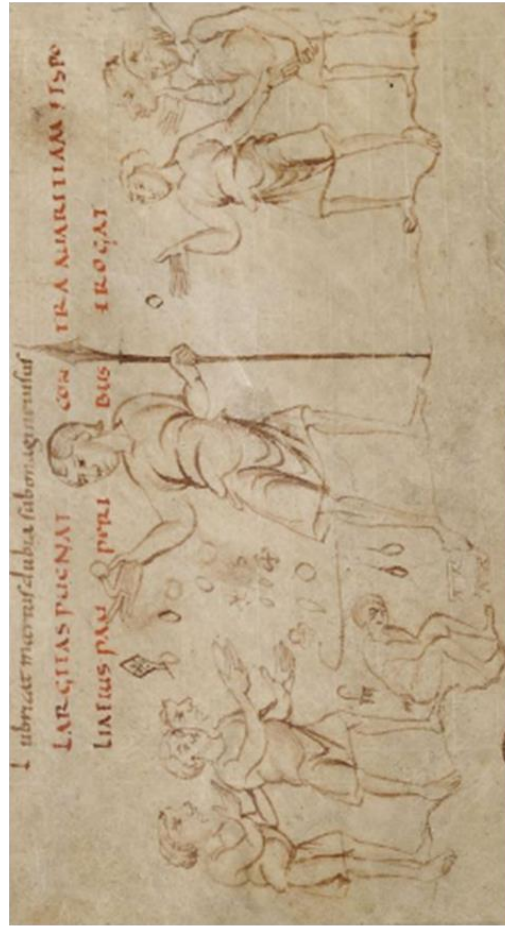 Lubricat incertus dubia sub imagine uisus
LARGITAS PUGNAT CON TRA AUARITIAM ET SPO
LIA EIUS PAU PERI BUS EROGAT